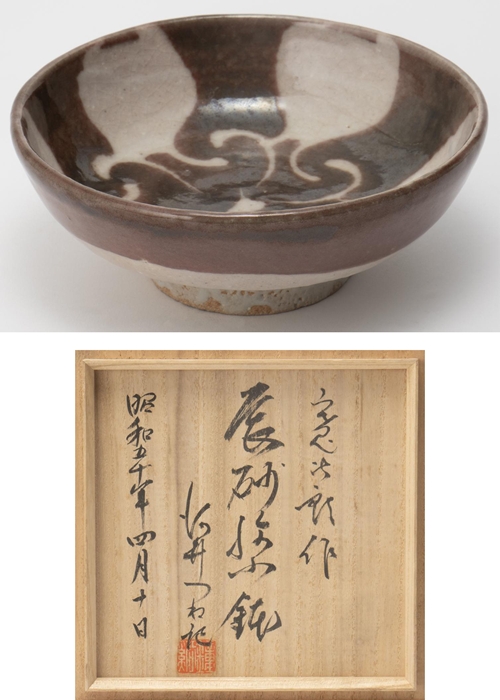 寛次郎作
辰砂 鉢
河井つね記
昭和五十年四月十日